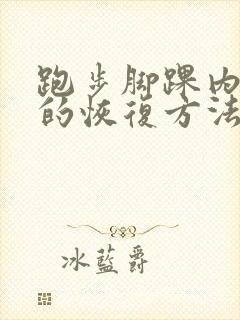 跑步脚踝内
的恢復方法
冰藍爵